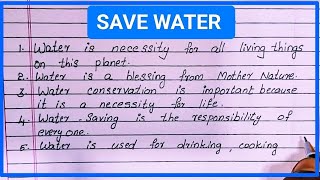 SAVE WATER
1. Water is necessity for all living things
on this planet.
2. Water is a blessing from Mother Nature.
3 Water conservation is important because
it is a necessity for life.
4. Water-Saving is the responsibility of
everyone.
5. Water is used for drinking, cooking